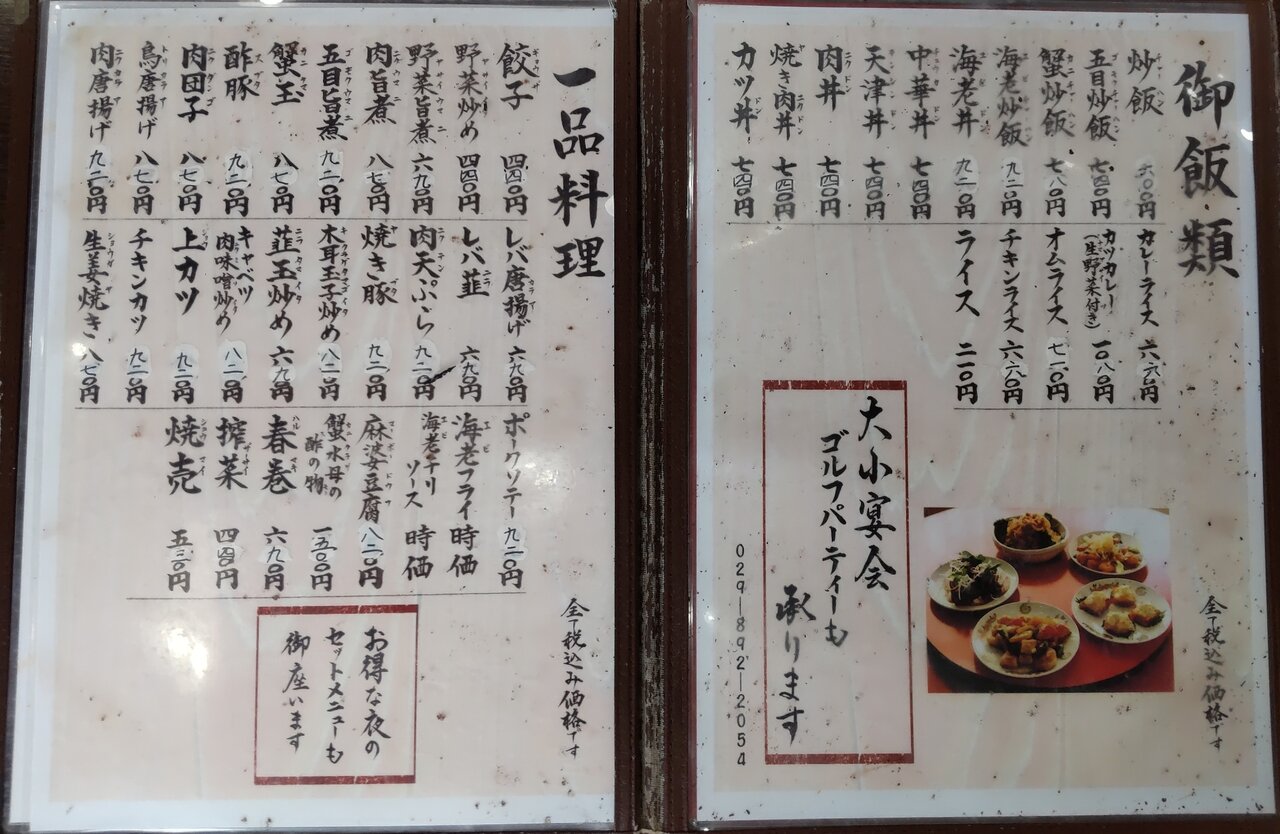 御飯類
炒飯 六〇〇円
五目炒飯 七四〇円
蟹炒飯 七八〇円
海老炒飯 九二〇円
海老丼 九二〇円
中華丼 七四〇円
天津丼 七四〇円
肉丼 七四〇円
焼き肉丼 七四〇円
カツ丼 七四〇円
カレーライス 六六〇円
カツカレー
(生野菜付き) 一〇八〇円
オムライス 七一〇円
チキンライス 六六〇円
ライス 二二〇円
大小宴会
ゴルフパーティーも
承ります
029-892-2054
全て税込み価格です
一品料理
餃子 四四〇円
野菜炒め 四四〇円
野菜旨煮 六九〇円
肉旨煮 八七〇円
五目旨煮 九二〇円
蟹玉 八七〇円
酢豚 九二〇円
肉団子 八七〇円
鳥唐揚げ 八七〇円
肉唐揚げ 九二〇円
レバ唐揚げ 六九〇円
レバ韮 六九〇円
肉天ぷら 九二〇円
焼き豚 九二〇円
木耳玉子炒め 八二〇円
韮玉炒め 六九〇円
キャベツ
肉味噌炒め 八二〇円
上カツ 九二〇円
チキンカツ 九二〇円
生姜焼き 八七〇円
ポークソテー 九二〇円
海老フライ 時価
海老チリ
ソース 時価
麻婆豆腐 八二〇円
蟹水母の
酢の物 一五〇〇円
春巻 六九〇円
搾菜 四四〇円
焼売 五三〇円
お得な夜の
セットメニューも
御座います
全て税込み価格です